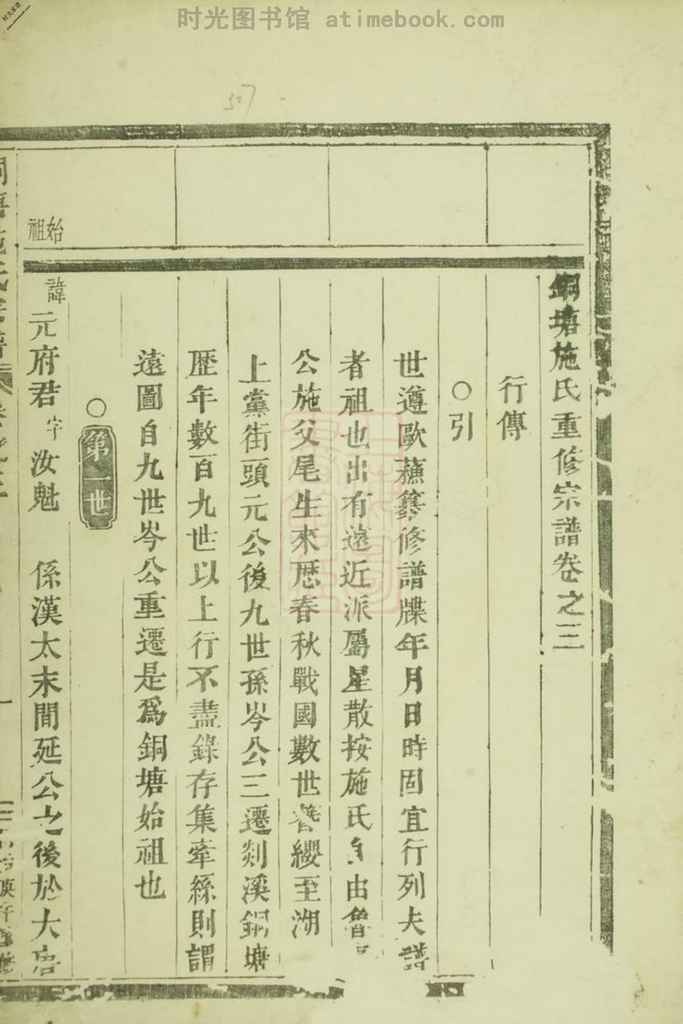 时光图书馆 atimebook.com
銅塘施氏重修宗譜卷之三
行傳
○引
世遵歐蘓纂修譜牒年月日時固宜行列夫譜
者祖也出有遠近派屬星散按施氏 由魯
公施父尾生來歷春秋戰國數世 纓至湖
上黨街頭元公後九世孫岑公三遷剡溪銅塘
歷年數百九世以上行不盡錄存集牽絲則謂
遠圖自九世岑公重遷是爲銅塘始祖也
○
第一世
始祖
諱元府君字汝魁 係漢太末間延公之後於大唐